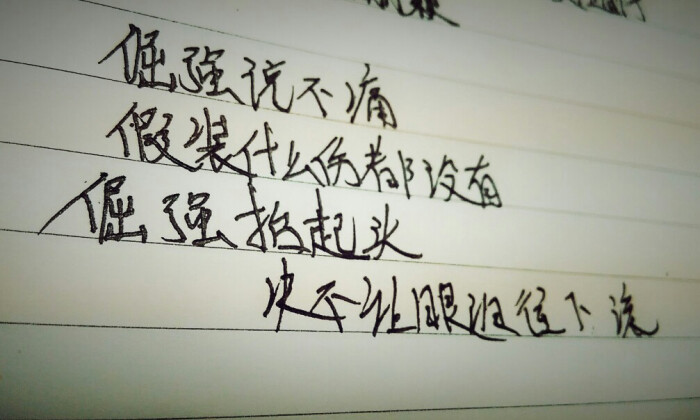 倔强说不痛
假装什么伤都没有
倔强抬起头
决不让眼泪往下流